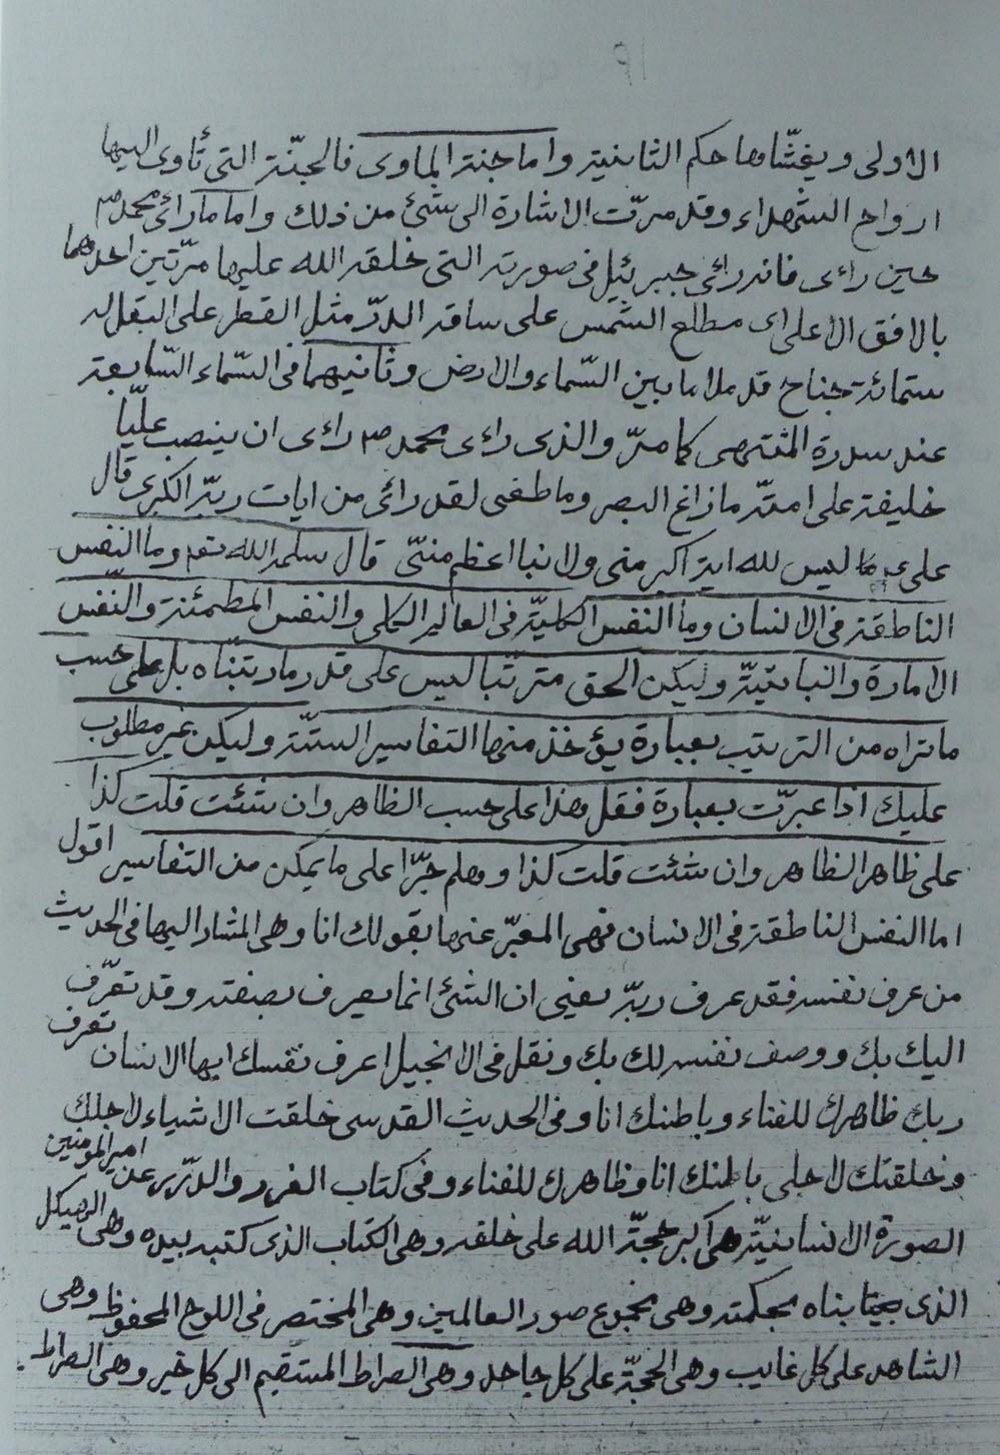 الاولى ويغشّاها حكم الثانية واما جنة الماوى فالجنّة التى تأوى اليها
ارواح الشهداء وقد مرّت الاشارة الى شئ من ذلك واما ما رائ محمد ص
حين رائ فانه رائ جبرئيل فى صورته التى خلقه الله عليها مرّتين احدهما
بالافق الاعلى اى مطلع الشمس على ساقه الدرّ مثل القطر على البقل له
ستمائة جناح قد ملا ما بين السّماء والارض وثانيهما فى السّماء السّابعة
عند سدرة المنتهى كما مرّ والذى راى محمد ص رائ ان ينصب عليّا
خليفة على امته ما زاغ البصر وما طغى لقد رائ من ايات ربّه الكبرى قال
على ع ما ليس لله اية اكبر منى ولا نبا اعظم منّى قال سلمه الله تعم وما النفس
الناطقة فى الانسان وما النفس الكليّة فى العالم الكلى والنفس المطمئنة والنّفس
الامارة والنباتيّة وليكن الحق مترتّبا ليس على قدر ما رتبناه بل على حسب
ما تراه من الترتيب بعبارة يؤخذ منها التفاسير الستّة وليكن غير مطلوب
عليك اذا عبرّت بعبارة فقل هذا على حسب الظاهر وان شئت قلت كذا
على ظاهر الظاهر وان شئت قلت كذا وهلم جرّا على ما يمكن من التفاسير اقول
اما النفس الناطقة فى الانسان فهى المعبّر عنها بقولك انا وهى المشار اليها فى الحديث
من عرف نفسه فقد عرف ربّه يعنى ان الشئ انما يعرف بصفته وقد تعرّف
اليك بك ووصف نفسه لك بك ونقل فى الانجيل اعرف نفسك ايها الانسان تعرف
ربك ظاهرك للفناء وباطنك انا وفى الحديث القدسى خلقت الاشياء لاجلك
وخلقتك لاجلى باطنك انا وظاهرك للفناء وفى كتاب الغرر والدّرر عن امير المؤمنين
الصورة الانسانيّة هى اكبر حجّة الله على خلقه وهى الكتاب الذى كتبه بيده وهى الهيكل
الذى بناه بحكمته وهى مجموع صور العالمين وهى المختصر فى اللوح المحفوظ وهى
الشاهد على كل غايب وهى الحجّة على كل جاحد وهى الصراط المستقيم الى كل خير وهى الصراط